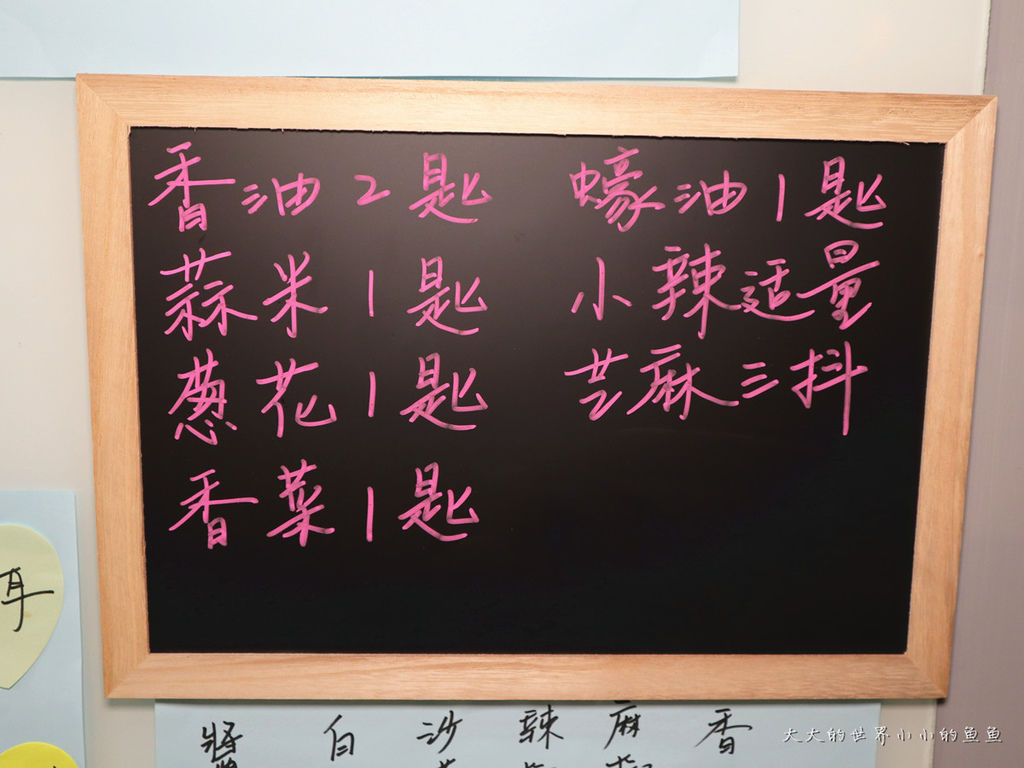 香油2匙
蒜米1匙
蔥花1匙
香菜1匙
蠔油1匙
小辣适量
芝麻三抖
耳
將 自 沙 辣 麻 香
大大的世界小小的鱼鱼